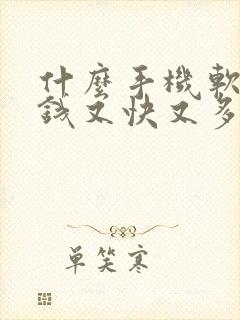 什麼手機軟
錢又快又多
單笑寒